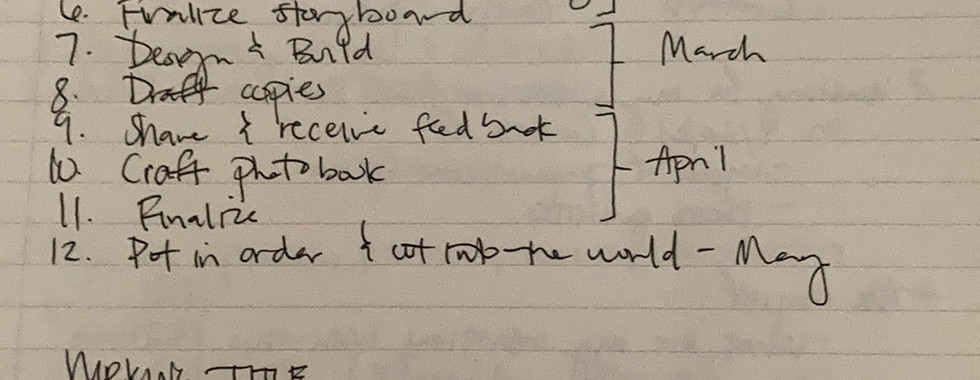 6. Finalize storyboard
7. Design & Build
8. Draft copies
March
9. Share & receive feedback
10. Craft photobook
April
11. Finalize
12. Put in order & out into the world - May